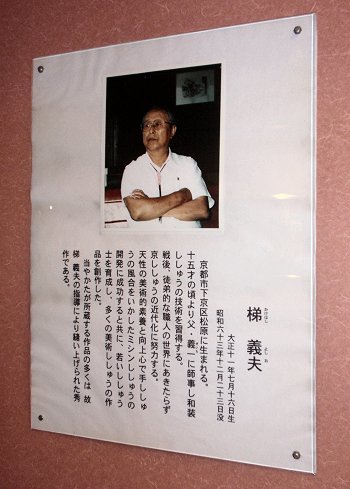 大正十一年七月十六日生
昭和六十三年十二月二十三日没
かけはし よしお
梯 義夫
京都市下京区松原に生まれる。
十五才の頃より父・義一に師事し和装
ししゅうの技術を習得する。
戦後、徒弟的な職人の世界にあきたらず
京ししゅうの近代化に努力する。
天性の美術的素養と向上心で手ししゅ
うの風合をいかしたミシンししゅうの
開発に成功すると共に、若いししゅう
士を育成し、多くの美術ししゅうの作
品を創作した。
当やかたが所蔵する作品の多くは 故
梯 義夫の指導により縫い上げられた秀
作である。